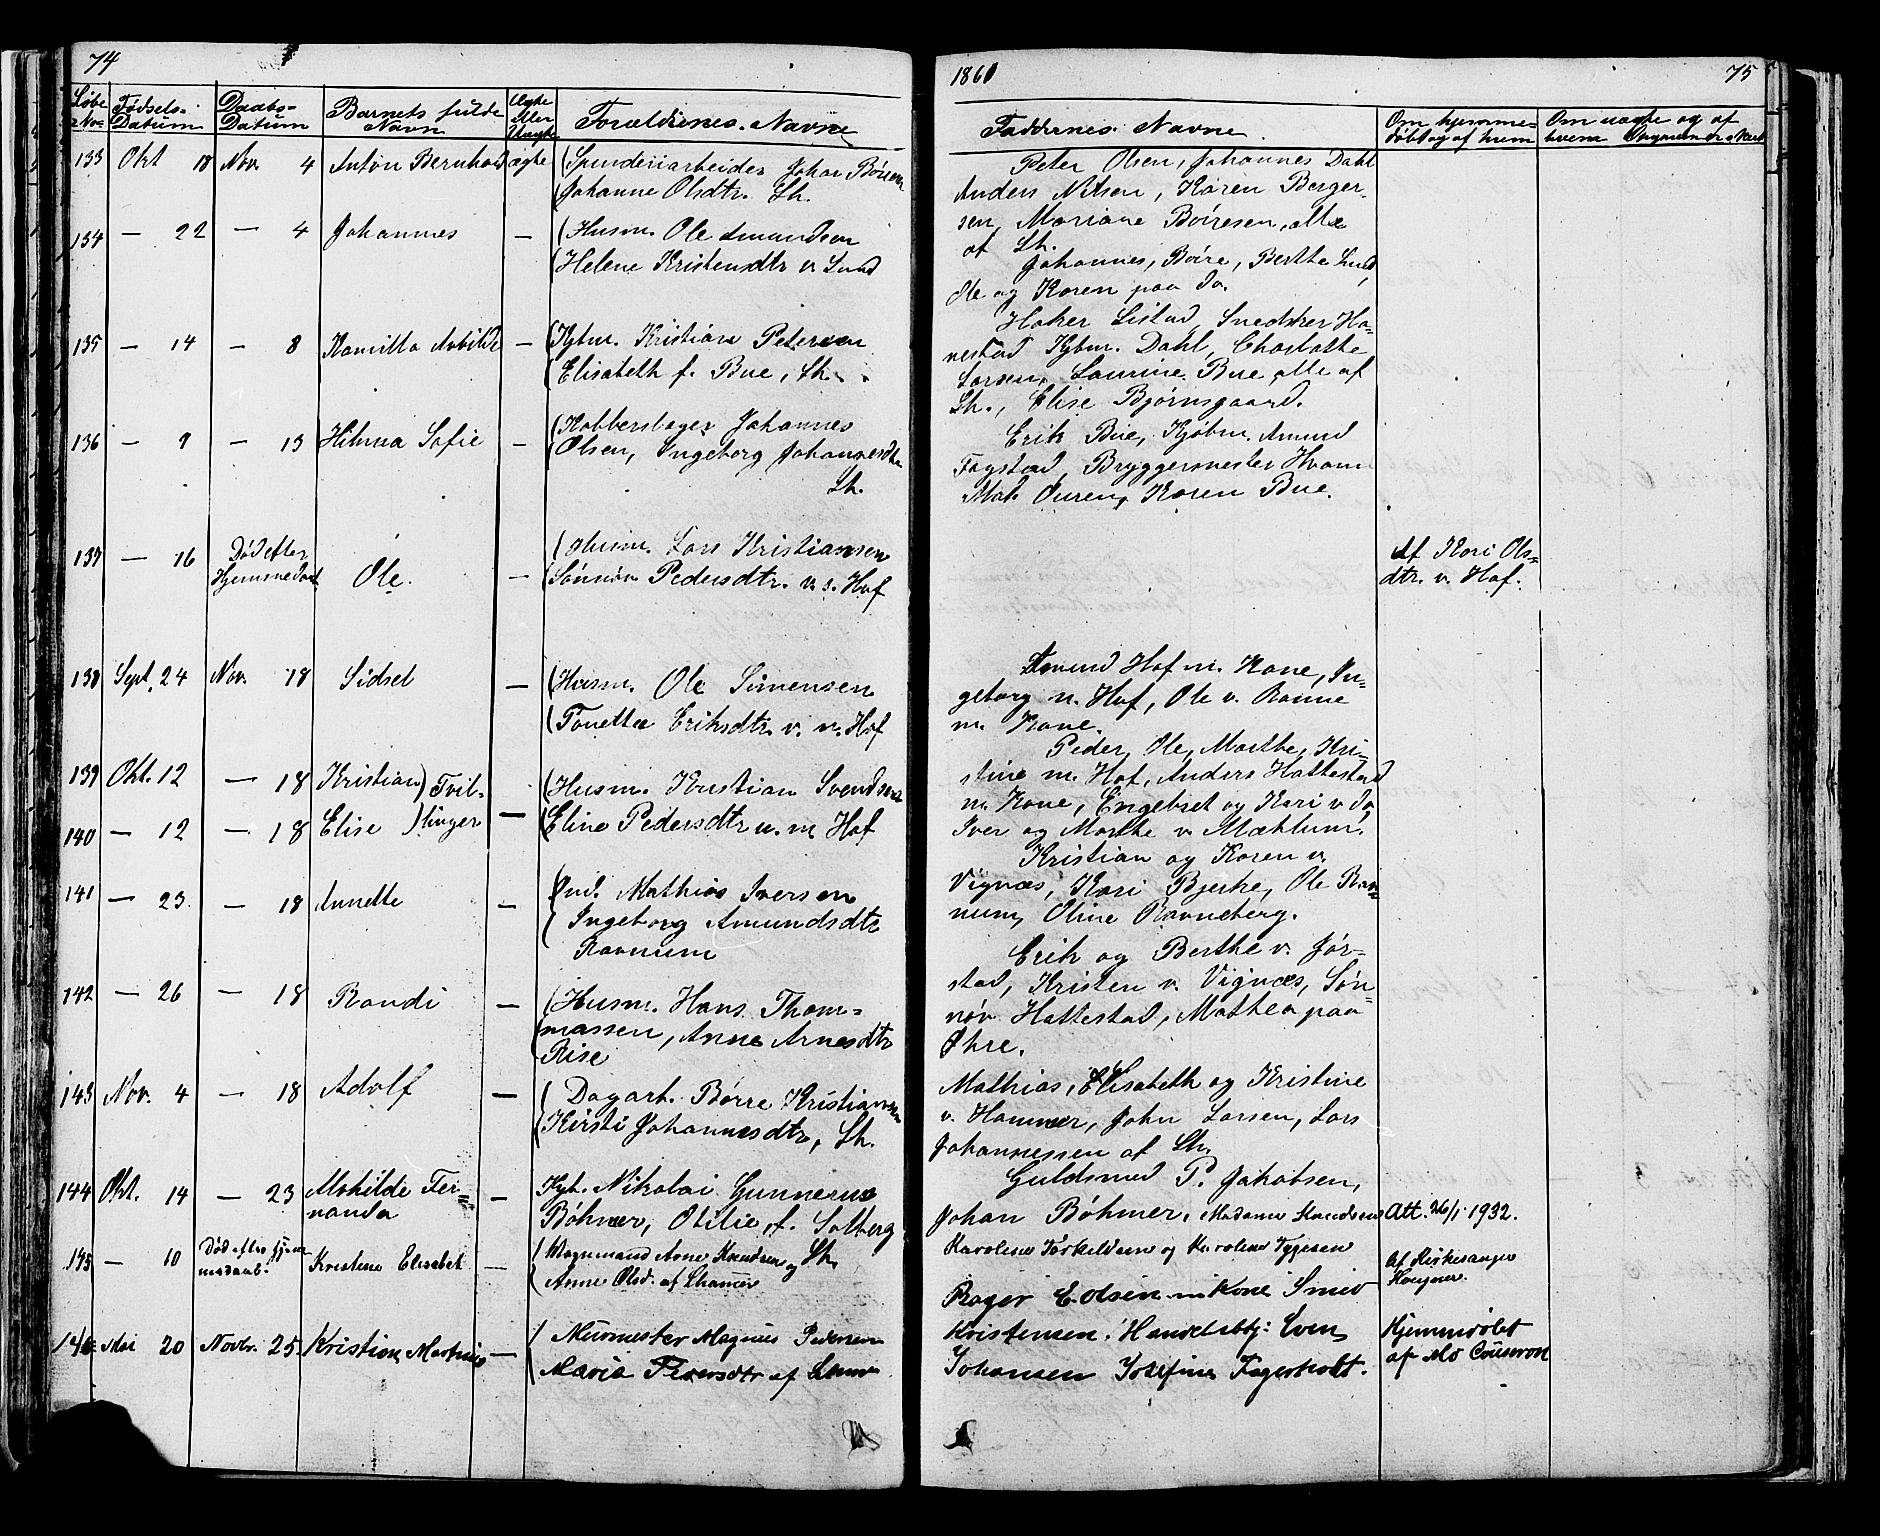 74
Løbe No.
Fødsels-Datum
Daabs-Datum
Barnets fulde Navn
Ægte Eller Uægte
Forældrenes Navne
133 Okt 18 Nov. 4 Anton Bernhard ægte (Spinderiarbeider Johan Børresen
(Johanne Olsdtr. Lh.
134 — 22 — 4 Johannes — (Husm. Ole Amundsen
(Helene Kristensdtr v. Lund
135 — 14 — 8 Kamilla Avhilde — (Kjbm. Kristian Petersen
(Elisabeth f. Bue, Lh.
136 — 9 — 13 Hilma Sofie — (Kobberslager Johannes
(Olsen, Ingeborg Johannesdtr
Lh.
137 — 16 Død efter Hjemmedaab Ole. — (Husm. Lars Kristiansen
(Sønnøv Pedersdtr. v. s. Hof
138 Sept. 24 Nov. 18 Sidsel — (Husm. Ole Simensen
(Tonette Eriksdtr. v. n. Hof
139 Okt. 12 — 18 Kristian) Tvil- (Husm. Kristian Svendsen
140 — 12 — 18 Elise )linger — (Eline Pedersdtr u. m Hof
141 — 23 — 18 Annette — (Ind. Mathias Iversen
( Ingeborg Amundsdtr
Ravnum
142 — 26 — 18 Randi — (Husm. Hans Thom=
massen, Anne Arnesdtr
Rise
143 Nov. 4 — 18 Adolf — ( Dagarb. Børre Kristiansen
(Kirsti Johannesdtr, Lh.
144 Okt. 14 — 23 Mathilde Fer= — Kjb. Nikolai Gunnerius
nanda Bøhmer, Otilie, f. Solberg
145 — 10 Død efter Hjem medaab. Kristine Elisabet — (Vognmand Arne Knudsen og Lh.
(Anne Olsd. af Lhamer
146 Mai 20 Novbr. 25. Kristian Martinius — ( Murmester Magnus Pedersen
( Maria Pedersdtr af Lhmr
1860
75
Faddernes Navne
Om hjemme-døbt og af hvem
Om uægte og af hvem
Peter Olsen, Johannes Dahl
Anders Nilsen, Karen Berger-
sen, Mariane Børresen, alle
af Lh.
Johannes, Børre, Berthe Lund,
Ole og Karen paa do.
Høker Listad, Snedker Ha=
nestad, Kjbm. Dahl, Charlotte
Larsen, Laurine Bue, alle af
Lh., Elise Bjørnsgaard.
Erik Bue, Kjøbm. Amund
Fagstad, Bryggermester Hvam
Mat. Owren, Karen Bue.
Af Kari Ols=
dtr. v. Hof.
Amund Hof m. Kone, In=
geborg n. Hof, Ole v. Ranne
m. Kone.
Peder, Ole, Marthe, Kri-
stine m. Hof, Anders Hattestad
m. Kone, Engebret og Kari v. do,
Iver og Marthe v. Mæhlum.
Kristian og Karen v.
Vignæs, Kari Bjerke, Ole Rav=
num, Oline Ravneberg.
Erik og Berthe v. Jør-
stad, Kristen v. Vignæs, Søn=
nøv Hattestad, Mathea paa
Øhre.
Mathias, Elisabeth og Kristine
v. Hammer, John Larsen, Lars
Johannessen af Lh.
Guldsmed P. Jakobsen,
Johan Bøhmer, Madame Knudsen Att. 26/1. 1932.
Karoline Torkildsen og Karoline Tygesen
Af Kirkesanger
Haugner.
Bager E. Olsen m Kone Smed
Kristensen. Handelsbtj: Even
Johansen Josefine Fagerholt.
Hjemmedøbt
af Md